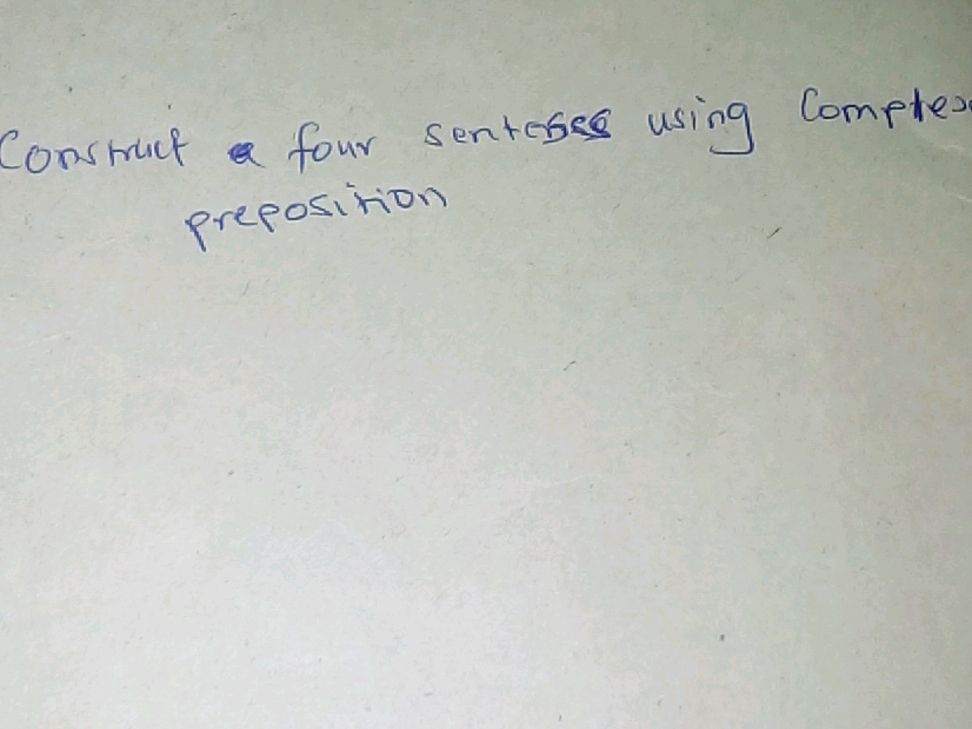 Construct a four senteses using Complex
preposition